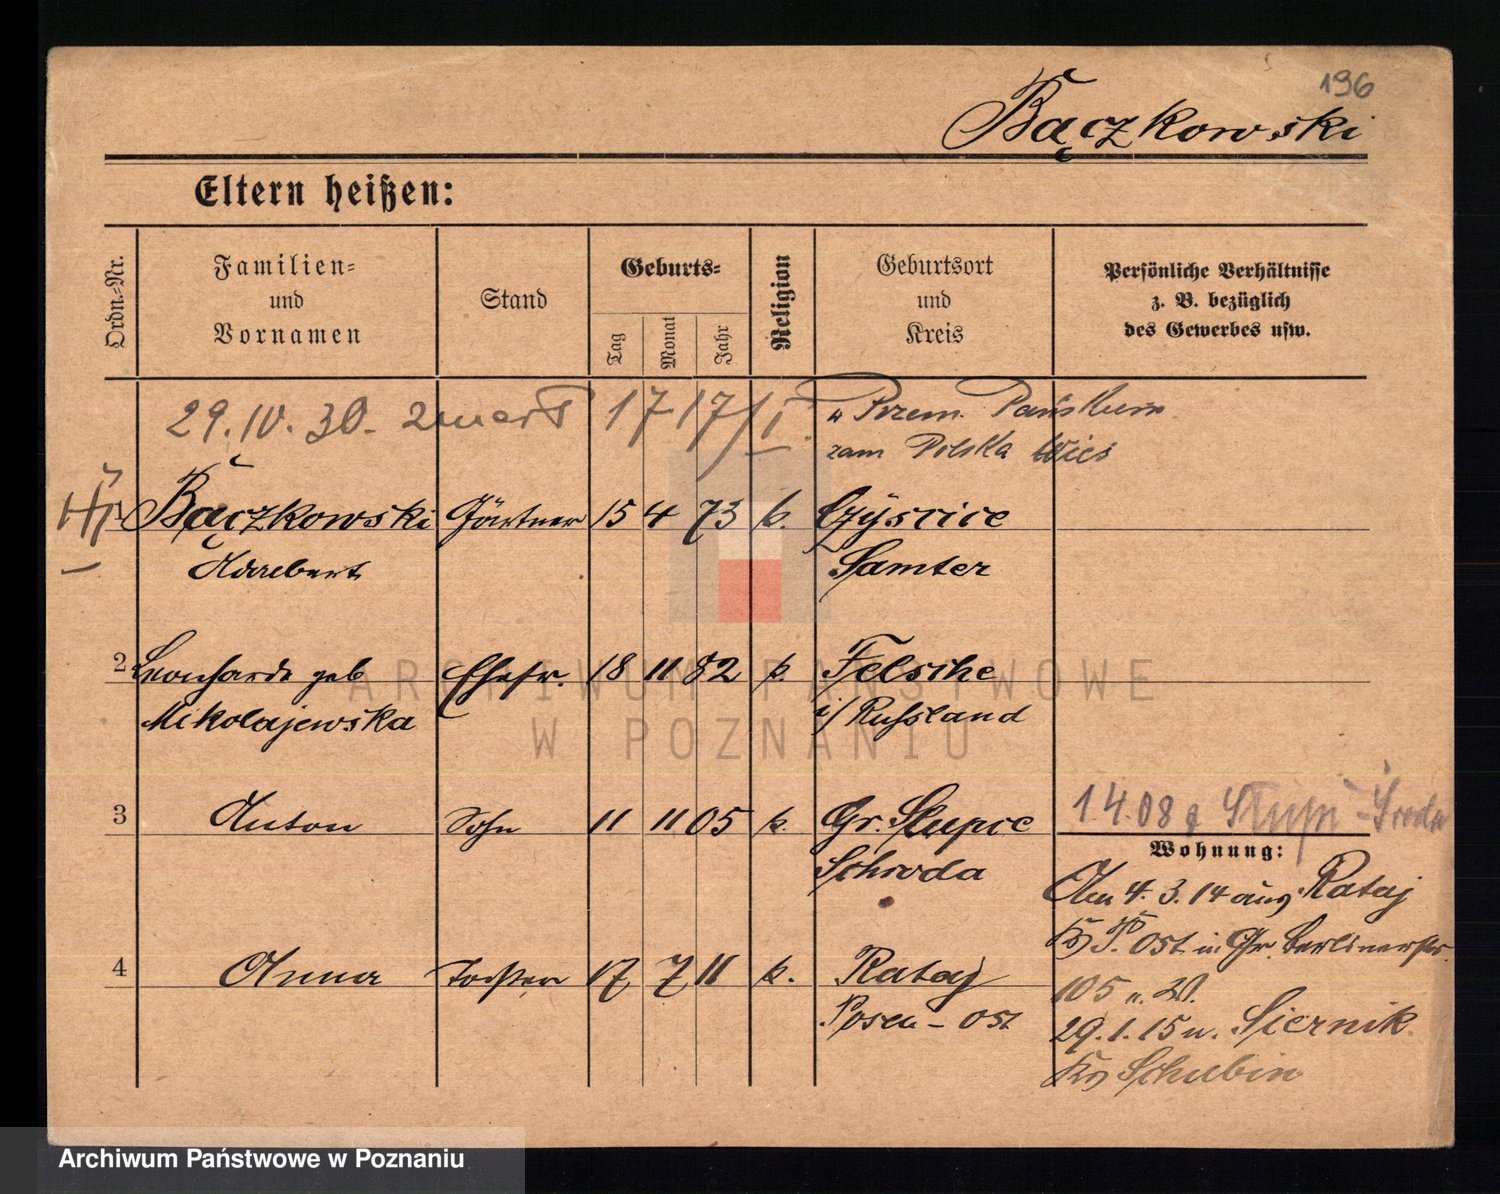 196
Bączkowski
Eltern heißen:
Ordn.-Nr.
Familien- und Vornamen
Stand
Geburts-
Tag
Monat
Jahr
Religion
Geburtsort und Kreis
Persönliche Verhältnisse z. B. bezüglich des Gewerbes usw.
29.IV.30. zmarł 17/I
w Przem. Pańskiem
zam Polska Wieś
1 Bączkowski Gärtner 15 4 73 k.
Adalbert Samter
2 Leonharda geb Ehefr. 18 11 82 k. Felsche
Mikolajewska i/ Russland
3 Anton Sohn 11 11 05 k. Gr. Slupce
Schroda
1.4.08
Wohnung:
4 Anna Tochter 17 7 11 k. Rataj
Posen-Ost
Am 4.3.14 aus Rataj
Ks P. Ost in Gr. Berlinerstr.
105 n. W.
29.1.15 n. Siernik
Ks Schubin
ARCHIWUM PAŃSTWOWE
W POZNANIU
Archiwum Państwowe w Poznaniu